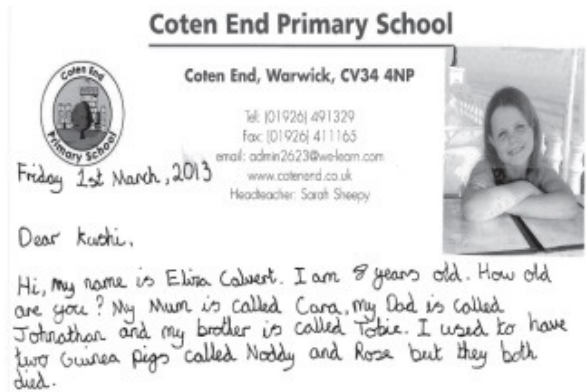 Coten End Primary School
Coten End, Warwick, CV34 4NP
Coten End
Primary School
Tel: (01926) 491329
Fax: (01926) 411165
email: admin2623@we-learn.com
www.cotenend.co.uk
Headteacher: Sarah Sheepy
Friday 1st March, 2013
Dear Kushi,
Hi, my name is Eliza Calvert. I am 8 years old. How old
are you? My Mum is called Cara, my Dad is called
Johnathan and my brother is called Tobie. I used to have
two Guinea Pigs called Noddy and Rose but they both
died.